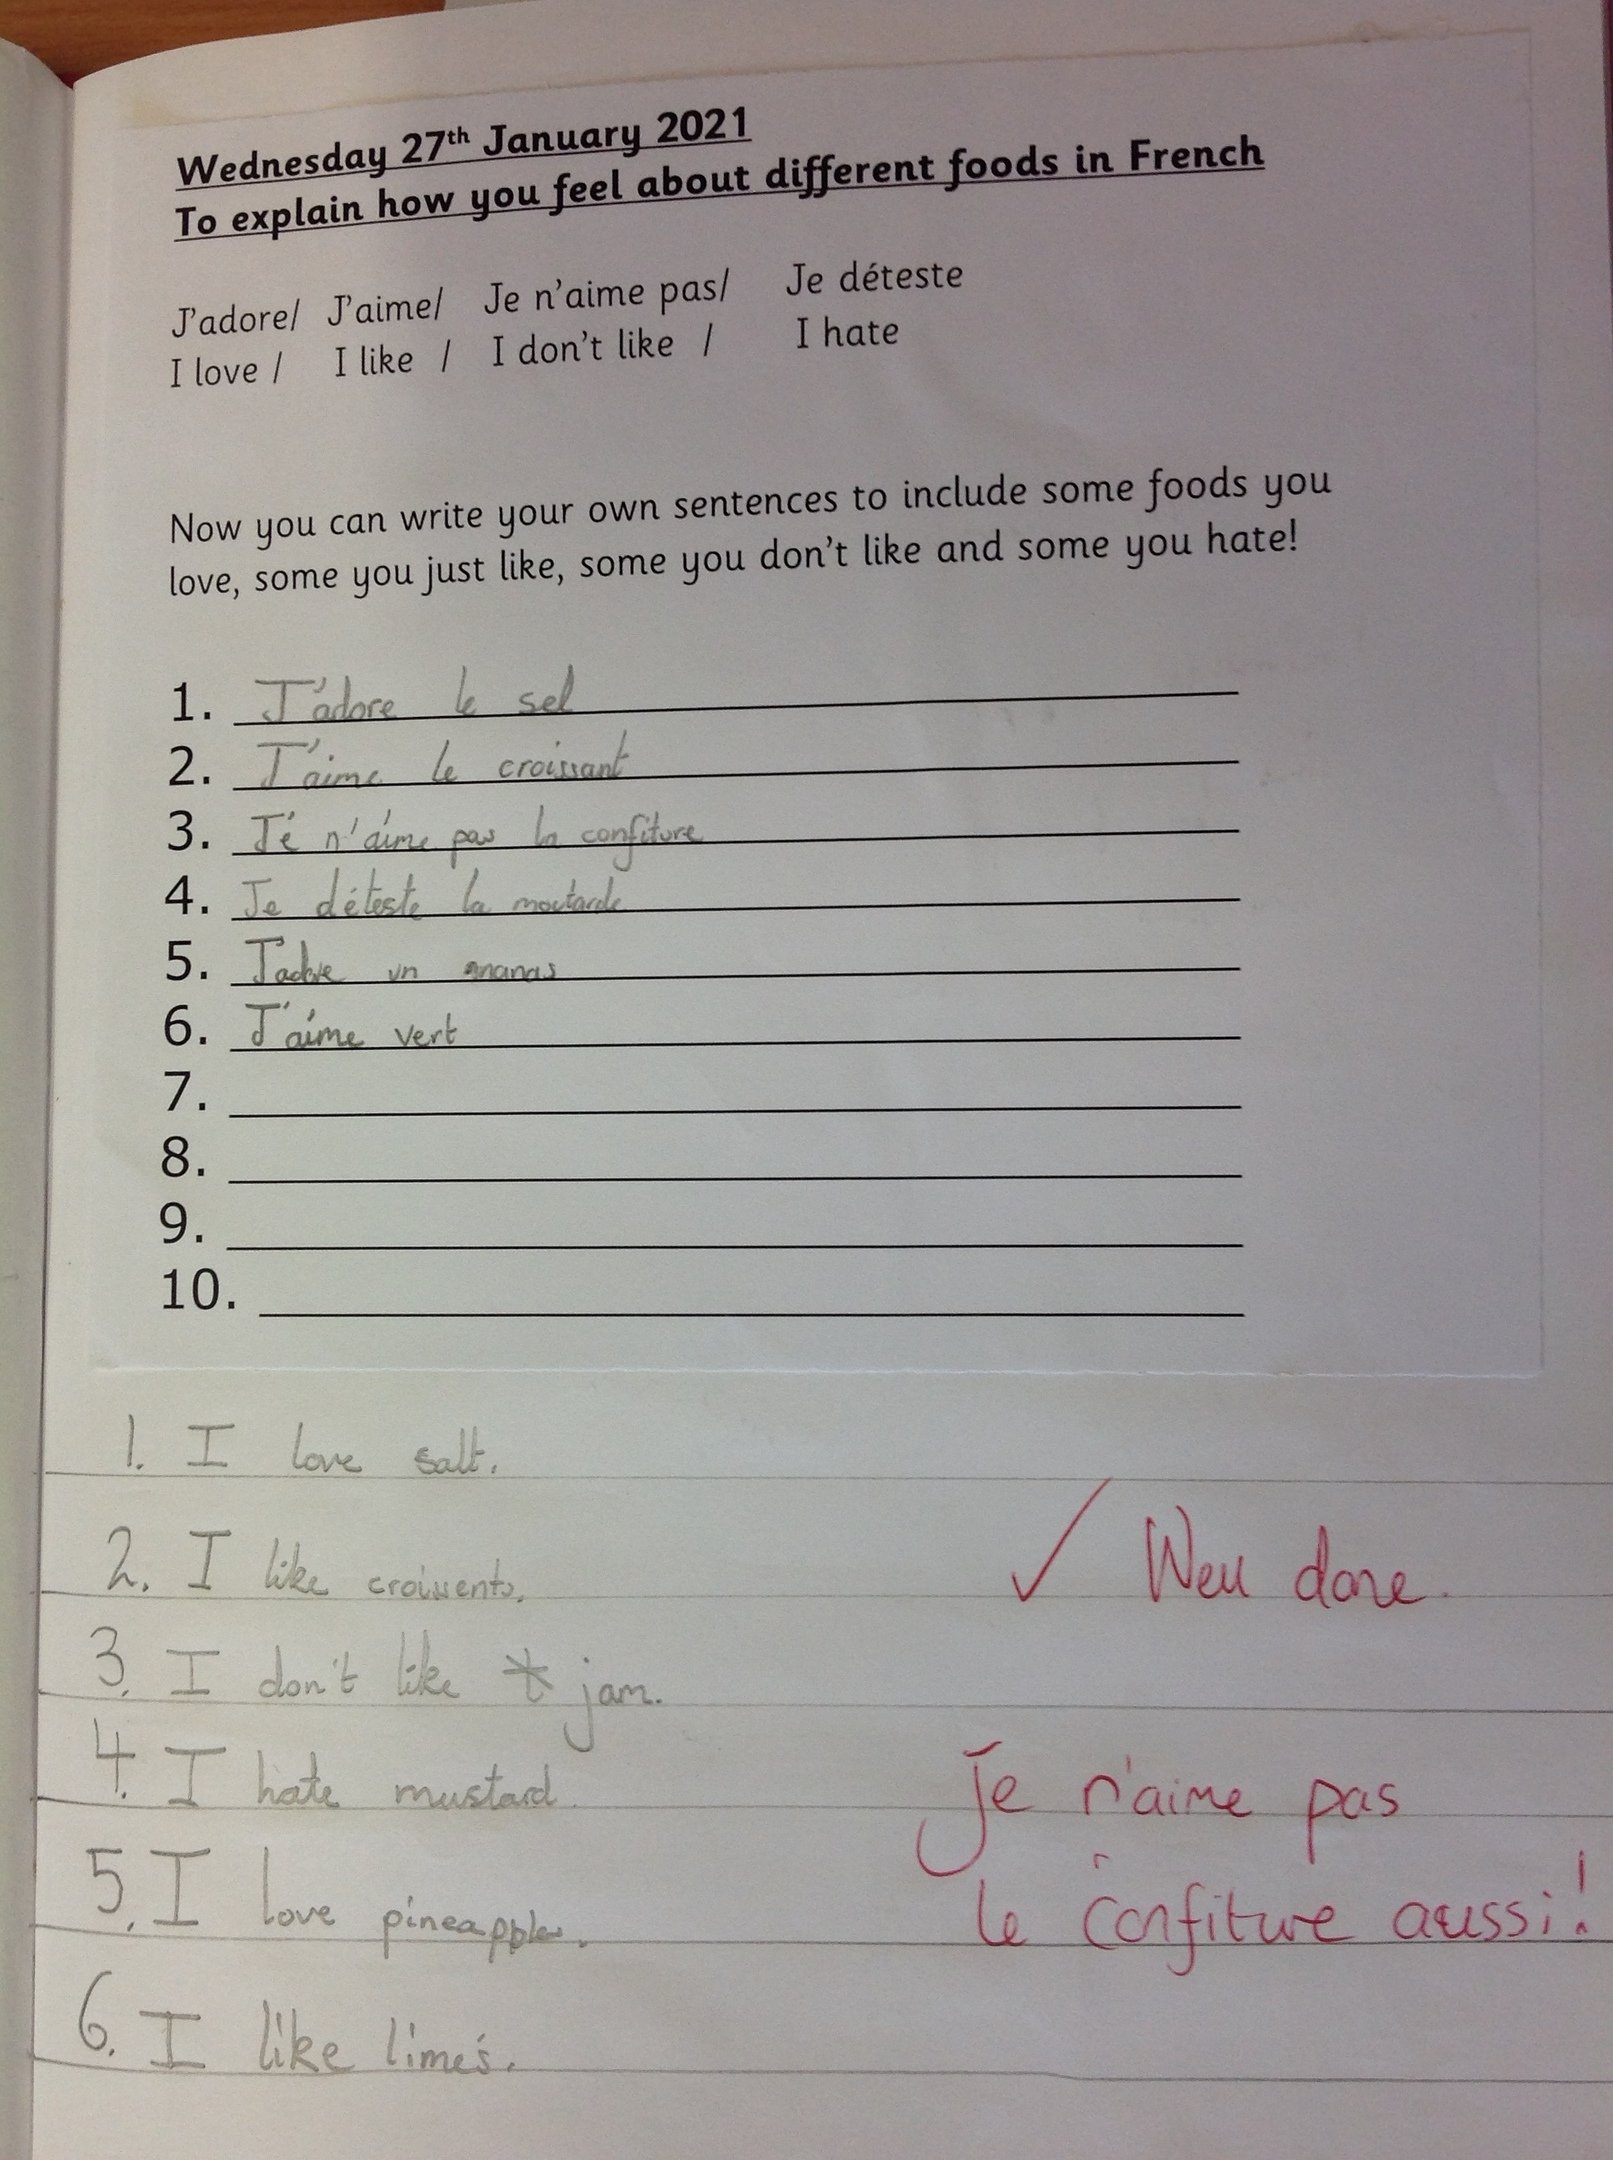 Wednesday 27th January 2021
To explain how you feel about different foods in French
J'adore/ J'aime/ Je n'aime pas/ Je déteste
I love / I like / I don't like / I hate
Now you can write your own sentences to include some foods you
love, some you just like, some you don't like and some you hate!
1. J'adore le sel
2. J'aime le croissant
3. Jé n'aime pas la confiture
4. Je déteste la moutarde
5. J'adore un ananas
6. J'aime vert
7.
8.
9.
10.
1. I love salt.
2. I like croissents.
✓ Well done.
3. I don't like jam.
4. I hate mustard.
Je n'aime pas
5. I love pineapples.
le confiture aussi!
6. I like lime's.